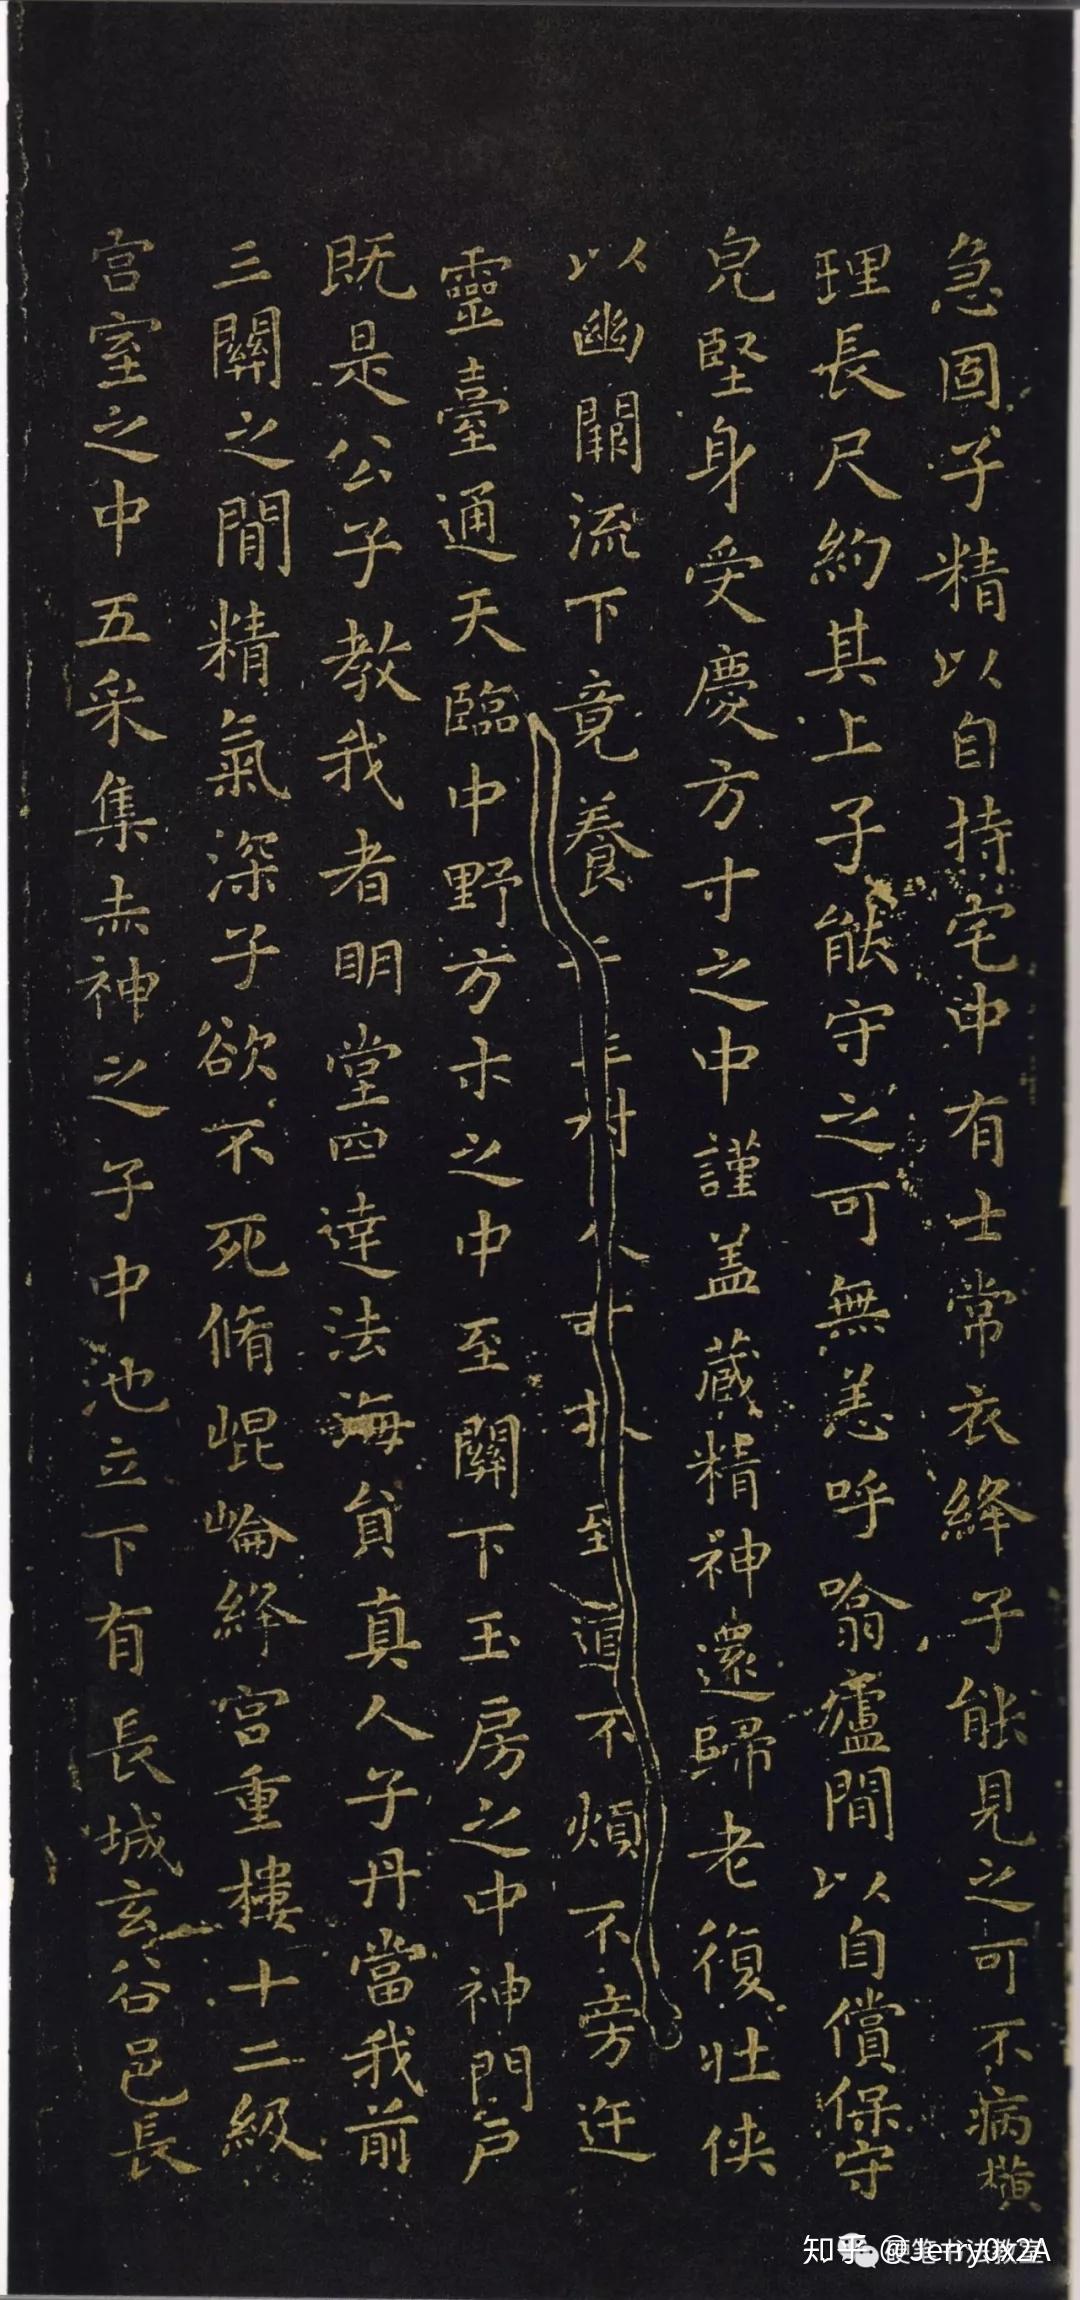 急固子精以自持宅中有士常衣絳子能見之可不病橫
理長尺約其上子能守之可無恙呼噏廬間以自償保守
皃堅身受慶方寸之中謹盖藏精神還歸老復壯俠
以幽闕流下竟養至道不煩不旁迕
靈臺通天臨中野方寸之中至關下玉房之中神門户
既是公子教我者明堂四達法海負真人子丹當我前
三關之間精氣深子欲不死脩崐崘絳宮重樓十二級
宮室之中五采集赤神之子中池立下有長城玄谷邑長
知乎 @Jerry0x2A